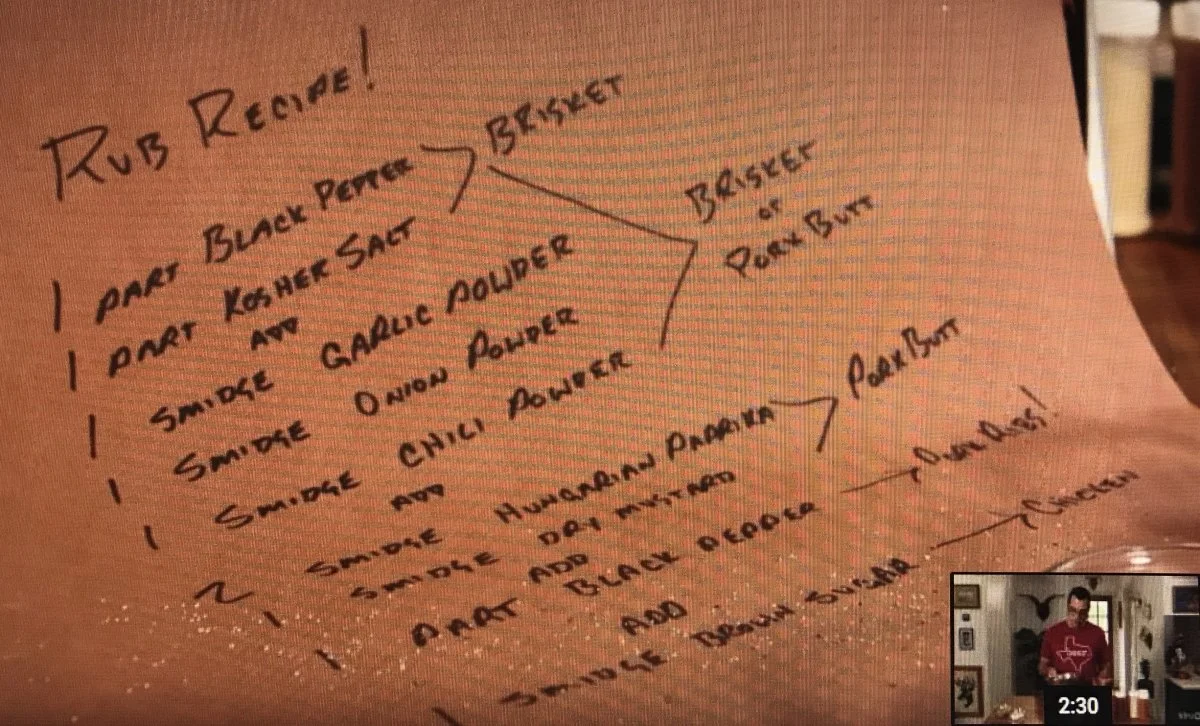 RUB RECIPE!
1 PART BLACK PEPPER
1 PART KOSHER SALT
BRISKET
ADD
1 SMIDGE GARLIC POWDER
1 SMIDGE ONION POWDER
1 SMIDGE CHILI POWDER
BRISKET
or
PORK BUTT
ADD
2 SMIDGE HUNGARIAN PAPRIKA
1 SMIDGE DRY MUSTARD
PORK BUTT
ADD
1 PART BLACK PEPPER → PORK RIBS!
ADD
1 SMIDGE BROWN SUGAR → CHICKEN
2:30